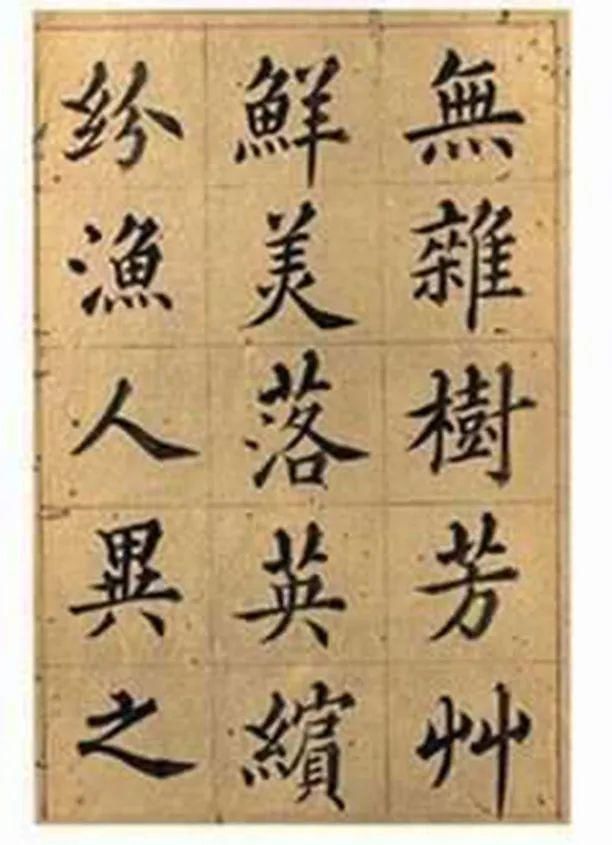 無雜樹芳艸
鮮美落英繽
紛漁人異之